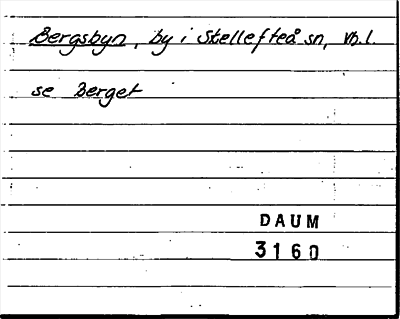 Bergsbyn, by i Skellefteå sn, Vb. l.
se Berget
DAUM
3160